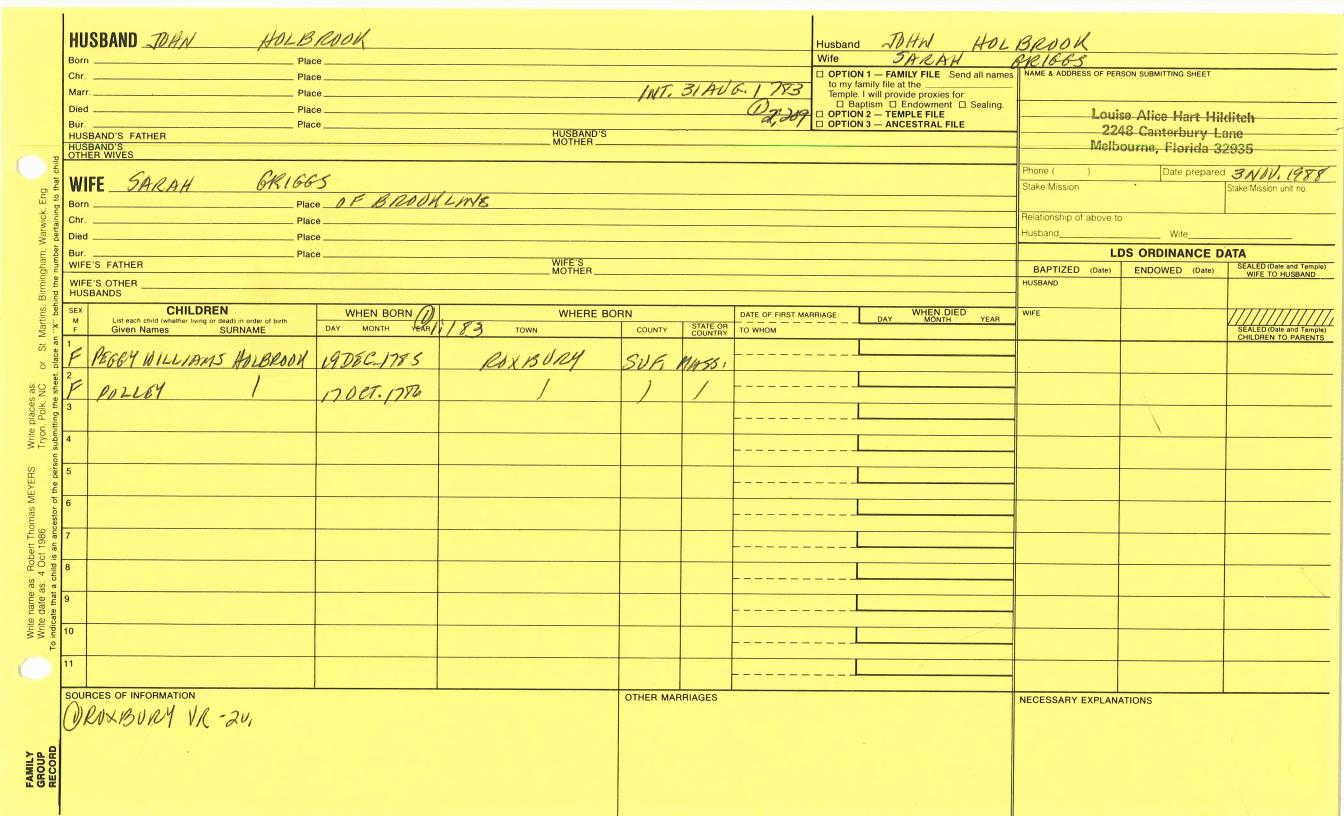 HUSBAND JOHN HOLBROOK
Born Place
Chr. Place
Marr. Place INT. 31 AUG. 1783
Died Place ① 2,209
Bur. Place
HUSBAND'S FATHER HUSBAND'S MOTHER
HUSBAND'S OTHER WIVES
Husband JOHN HOLBROOK
Wife SARAH GRIGGS
☐ OPTION 1 — FAMILY FILE Send all names
to my family file at the
Temple. I will provide proxies for
☐ Baptism ☐ Endowment ☐ Sealing.
☐ OPTION 2 — TEMPLE FILE
☐ OPTION 3 — ANCESTRAL FILE
NAME & ADDRESS OF PERSON SUBMITTING SHEET
Louise Alice Hart Hilditch
2248 Canterbury Lane
Melbourne, Florida 32935
Phone ( ) Date prepared 3 NOV. 1988
Stake/Mission Stake/Mission unit no.
Relationship of above to
Husband Wife
WIFE SARAH GRIGGS
Born Place OF BROOKLINE
Chr. Place
Died Place
Bur. Place
WIFE'S FATHER WIFE'S MOTHER
WIFE'S OTHER HUSBANDS
LDS ORDINANCE DATA
BAPTIZED (Date) ENDOWED (Date) SEALED (Date and Temple) WIFE TO HUSBAND
HUSBAND
WIFE
SEALED (Date and Temple) CHILDREN TO PARENTS
SEX M F
CHILDREN
List each child (whether living or dead) in order of birth
Given Names SURNAME
WHEN BORN ①
DAY MONTH YEAR 1,183
WHERE BORN
TOWN COUNTY STATE OR COUNTRY
DATE OF FIRST MARRIAGE
TO WHOM
WHEN DIED
DAY MONTH YEAR
1 F PEGGY WILLIAMS HOLBROOK 19 DEC. 1785 ROXBURY SUF. MASS.
2 F POLLEY / 17 OCT. 1786 / / /
3
4
5
6
7
8
9
10
11
SOURCES OF INFORMATION
① ROXBURY VR - 2v.
OTHER MARRIAGES
NECESSARY EXPLANATIONS
Write name as: Robert Thomas MEYERS Write places as: Tryon, Polk, NC or St. Martins, Birmingham, Warwick, Eng
Write date as: 4 Oct 1986
To indicate that a child is an ancestor of the person submitting the sheet, place an "X" behind the number pertaining to that child
FAMILY
GROUP
RECORD